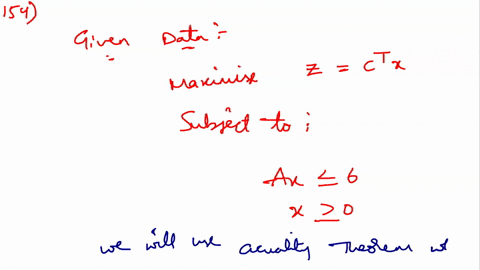 154)
Given Data:-
Maximise Z = cᵀx
Subject to ;
Ax ≤ 6
x ≥ 0
we will use Theorem